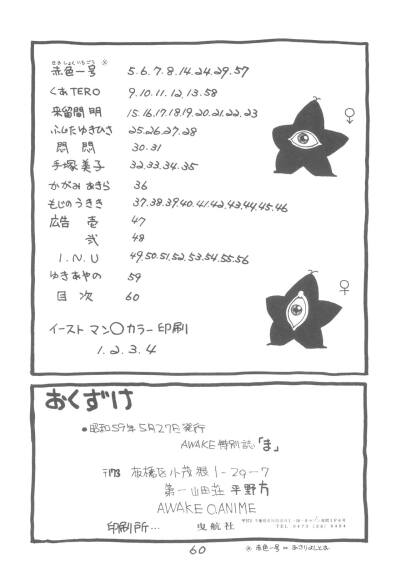 せきしょくいちごう ※
赤色一号 5.6.7.8.14.24.29.57
くあTERO 9.10.11.12.13.58
来留間 明 15.16.17.18.19.20.21.22.23
ふじたゆきひさ 25.26.27.28
悶悶 30.31
手塚美子 32.33.34.35
かがみあきら 36
もじのうきき 37.38.39.40.41.42.43.44.45.46
広告 壱 47
弐 48
I.N.U 49.50.51.52.53.54.55.56
ゆきあやの 59
目次 60
イーストマン○カラー印刷
1.2.3.4
♂
♀
おくずけ
●昭和59年5月27日発行
AWAKE特別誌「ま」
〒173 板橋区小茂根1-29-7
第一山田荘 平野方
AWAKE O.ANIME
印刷所… 曳航社
60
※ 赤色一号 = あさりよしとお